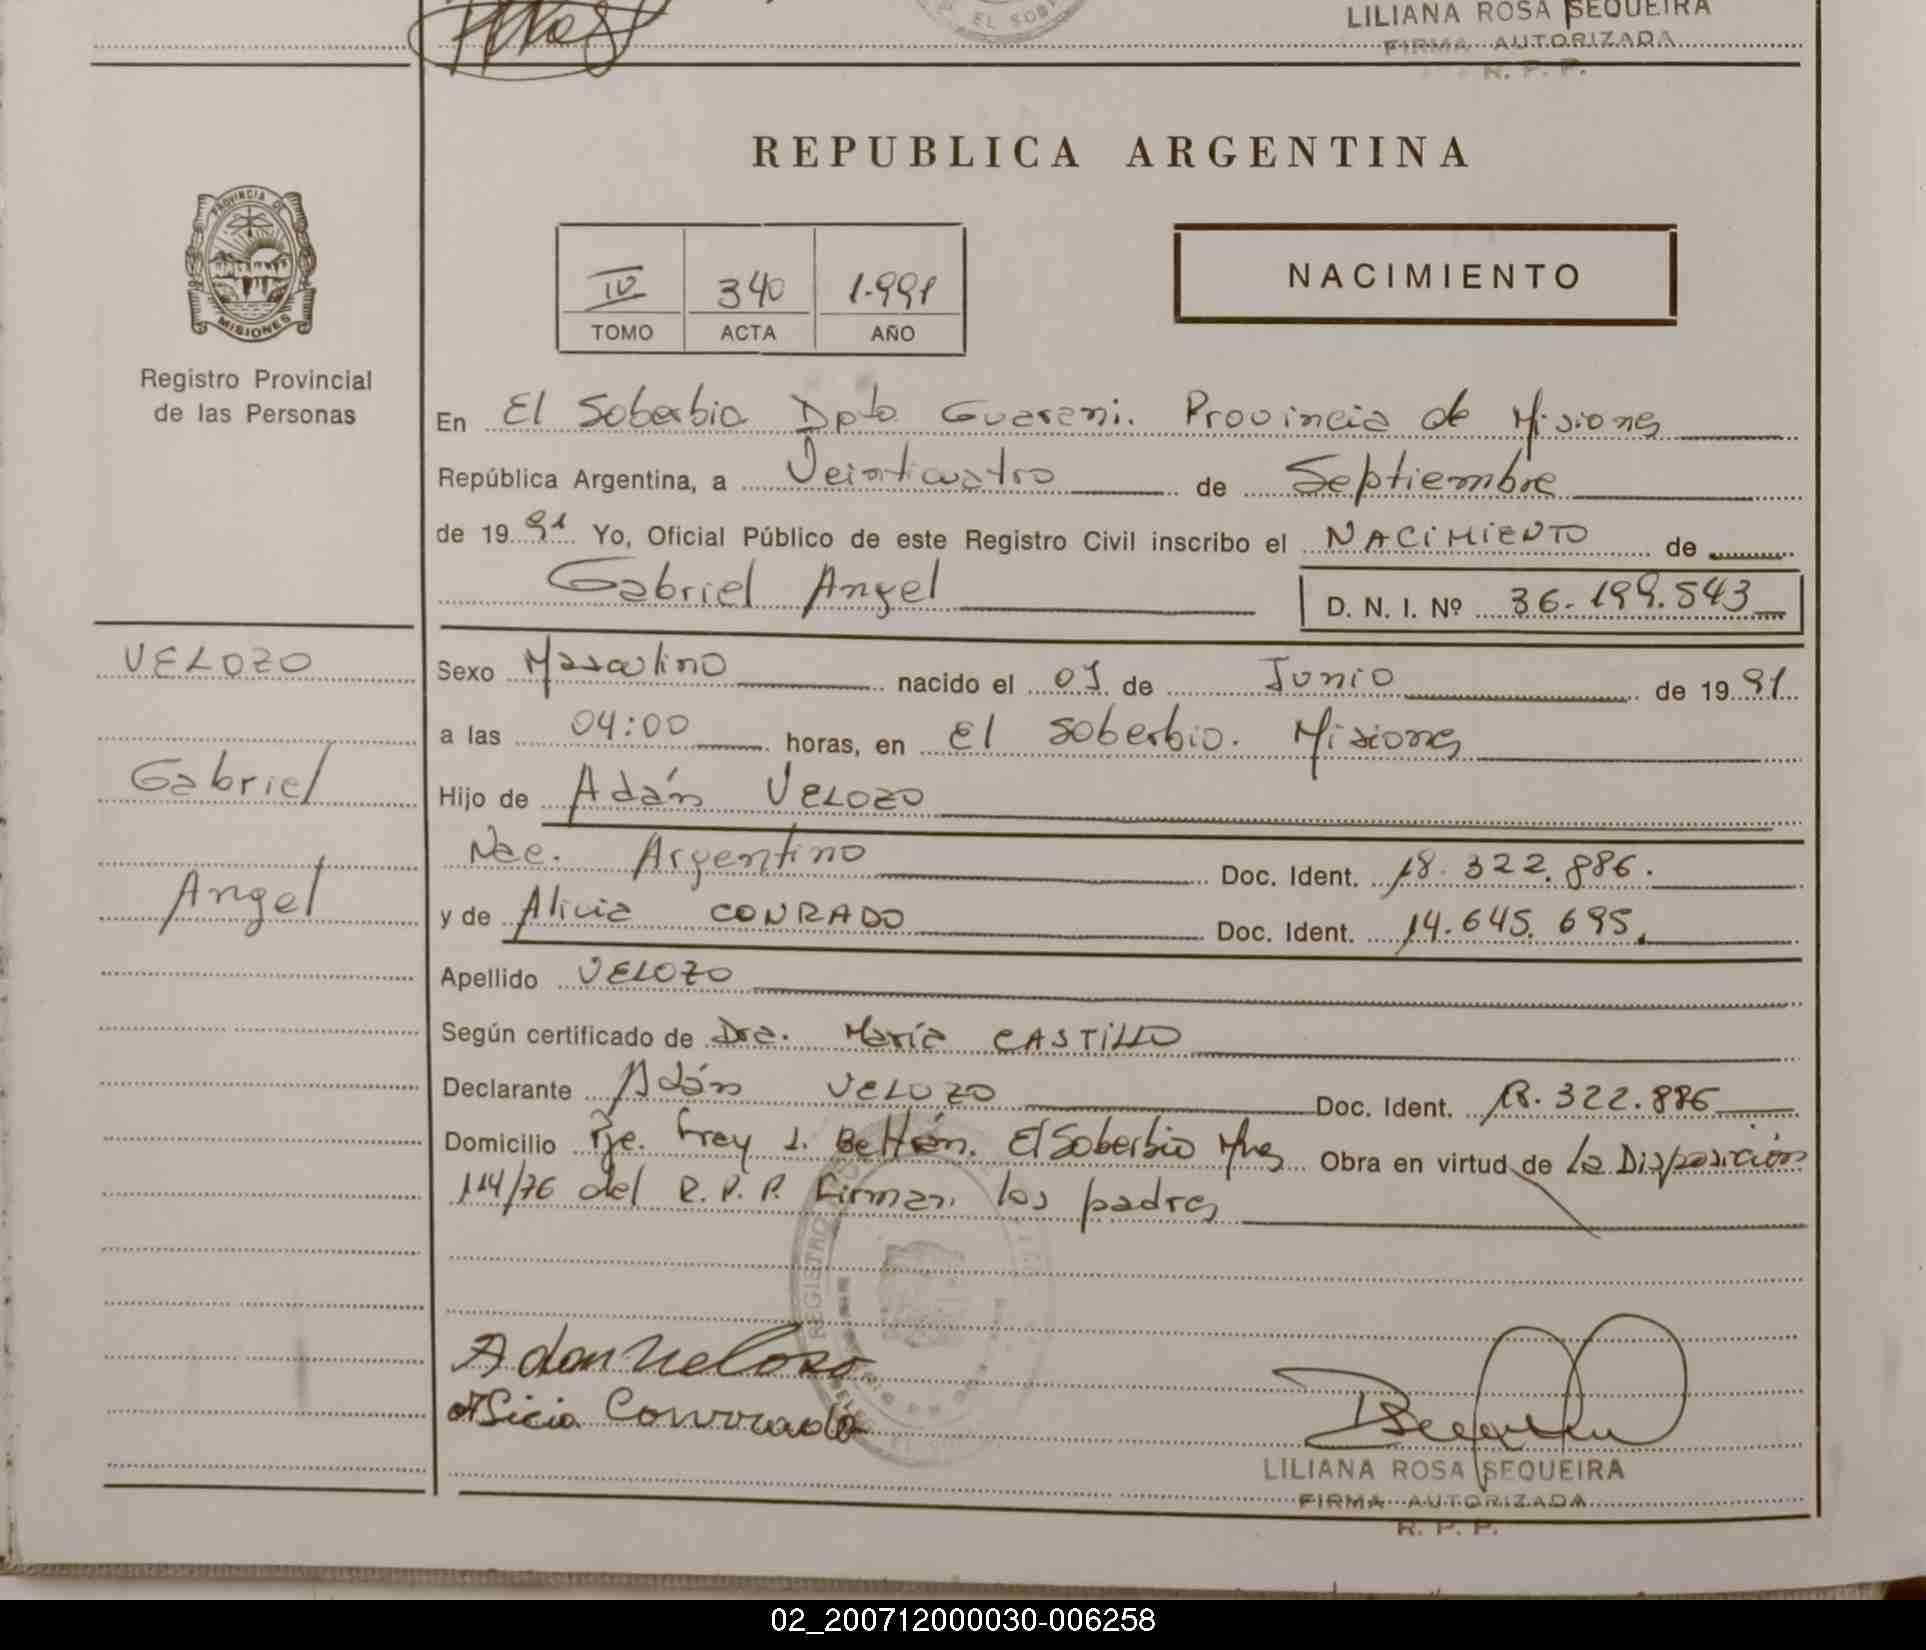 EL SOB
LILIANA ROSA SEQUEIRA
FIRMA AUTORIZADA
R. P. P.
REPUBLICA ARGENTINA
PROVINCIA DE
MISIONES
Registro Provincial
de las Personas
IV 340 1.991
TOMO ACTA AÑO
NACIMIENTO
En El Soberbio Dpto Guarani. Provincia de Misiones
República Argentina, a Veinticuatro de Septiembre
de 1991 Yo, Oficial Público de este Registro Civil inscribo el NACIMIENTO de
Gabriel Angel D. N. I. Nº 36.199.543
VELOZO
Gabriel
Angel
Sexo Masculino nacido el 01 de Junio de 1991
a las 04:00 horas, en El Soberbio. Misiones
Hijo de Adán VELOZO
Nac. Argentino Doc. Ident. 18.322.886.
y de Alicia CONRADO Doc. Ident. 14.645.695.
Apellido VELOZO
Según certificado de Dra. María CASTILLO
Declarante Adán VELOZO Doc. Ident. 18.322.886
Domicilio Pje. Frey L. Beltrán. El Soberbio Mnes Obra en virtud de La Disposición
114/76 del R.P.P. Firman los padres
REGISTRO
Adan Veloso
Alicia Conrrado
LILIANA ROSA SEQUEIRA
FIRMA AUTORIZADA
R. P. P.
02_200712000030-006258